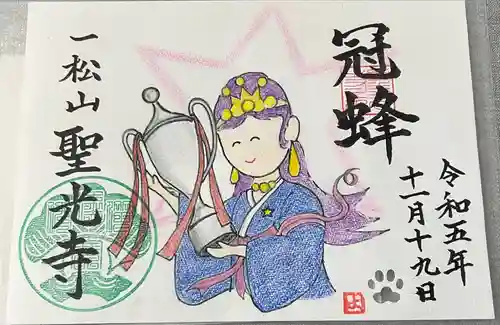 冠蜂
令和五年
十一月十九日
一松山
聖光寺